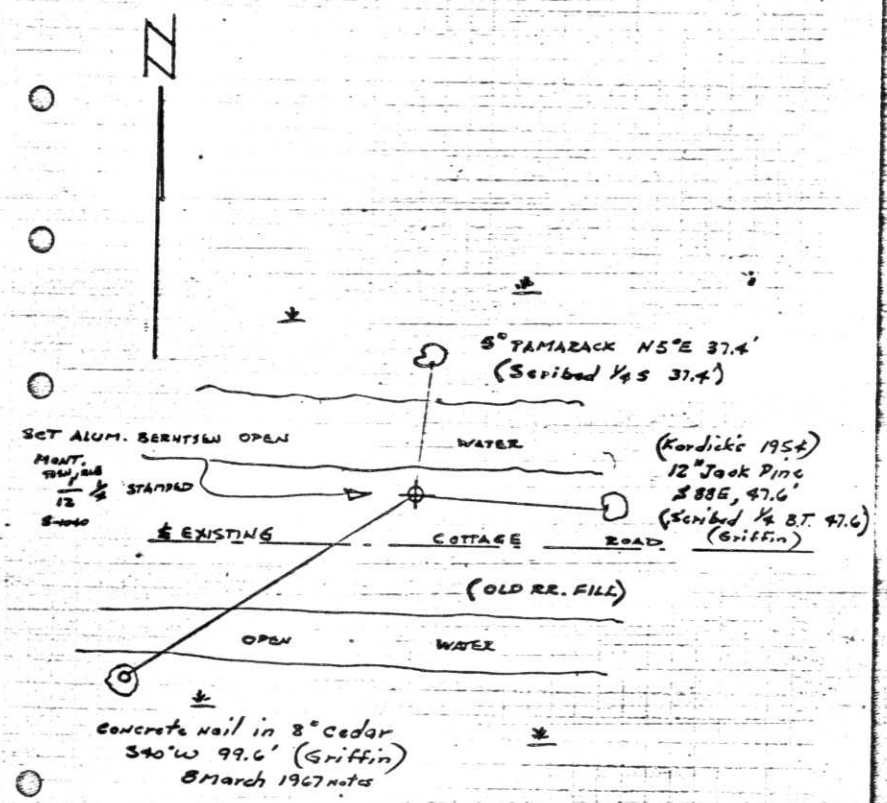 N
5" TAMARACK N5°E 37.4'
(Scribed 1/4 S 37.4')
SET ALUM. BERNTSEN
MONT.
1
12 1/4
STAMPED
S-1040
OPEN WATER
(Kordick's 1954)
12" Jack Pine
S 88E, 47.6'
(Scribed 1/4 B.T. 47.6)
(Griffin)
℄ EXISTING COTTAGE ROAD
(OLD RR. FILL)
OPEN WATER
Concrete Nail in 8" Cedar
S40°W 99.6' (Griffin)
8 March 1967 notes